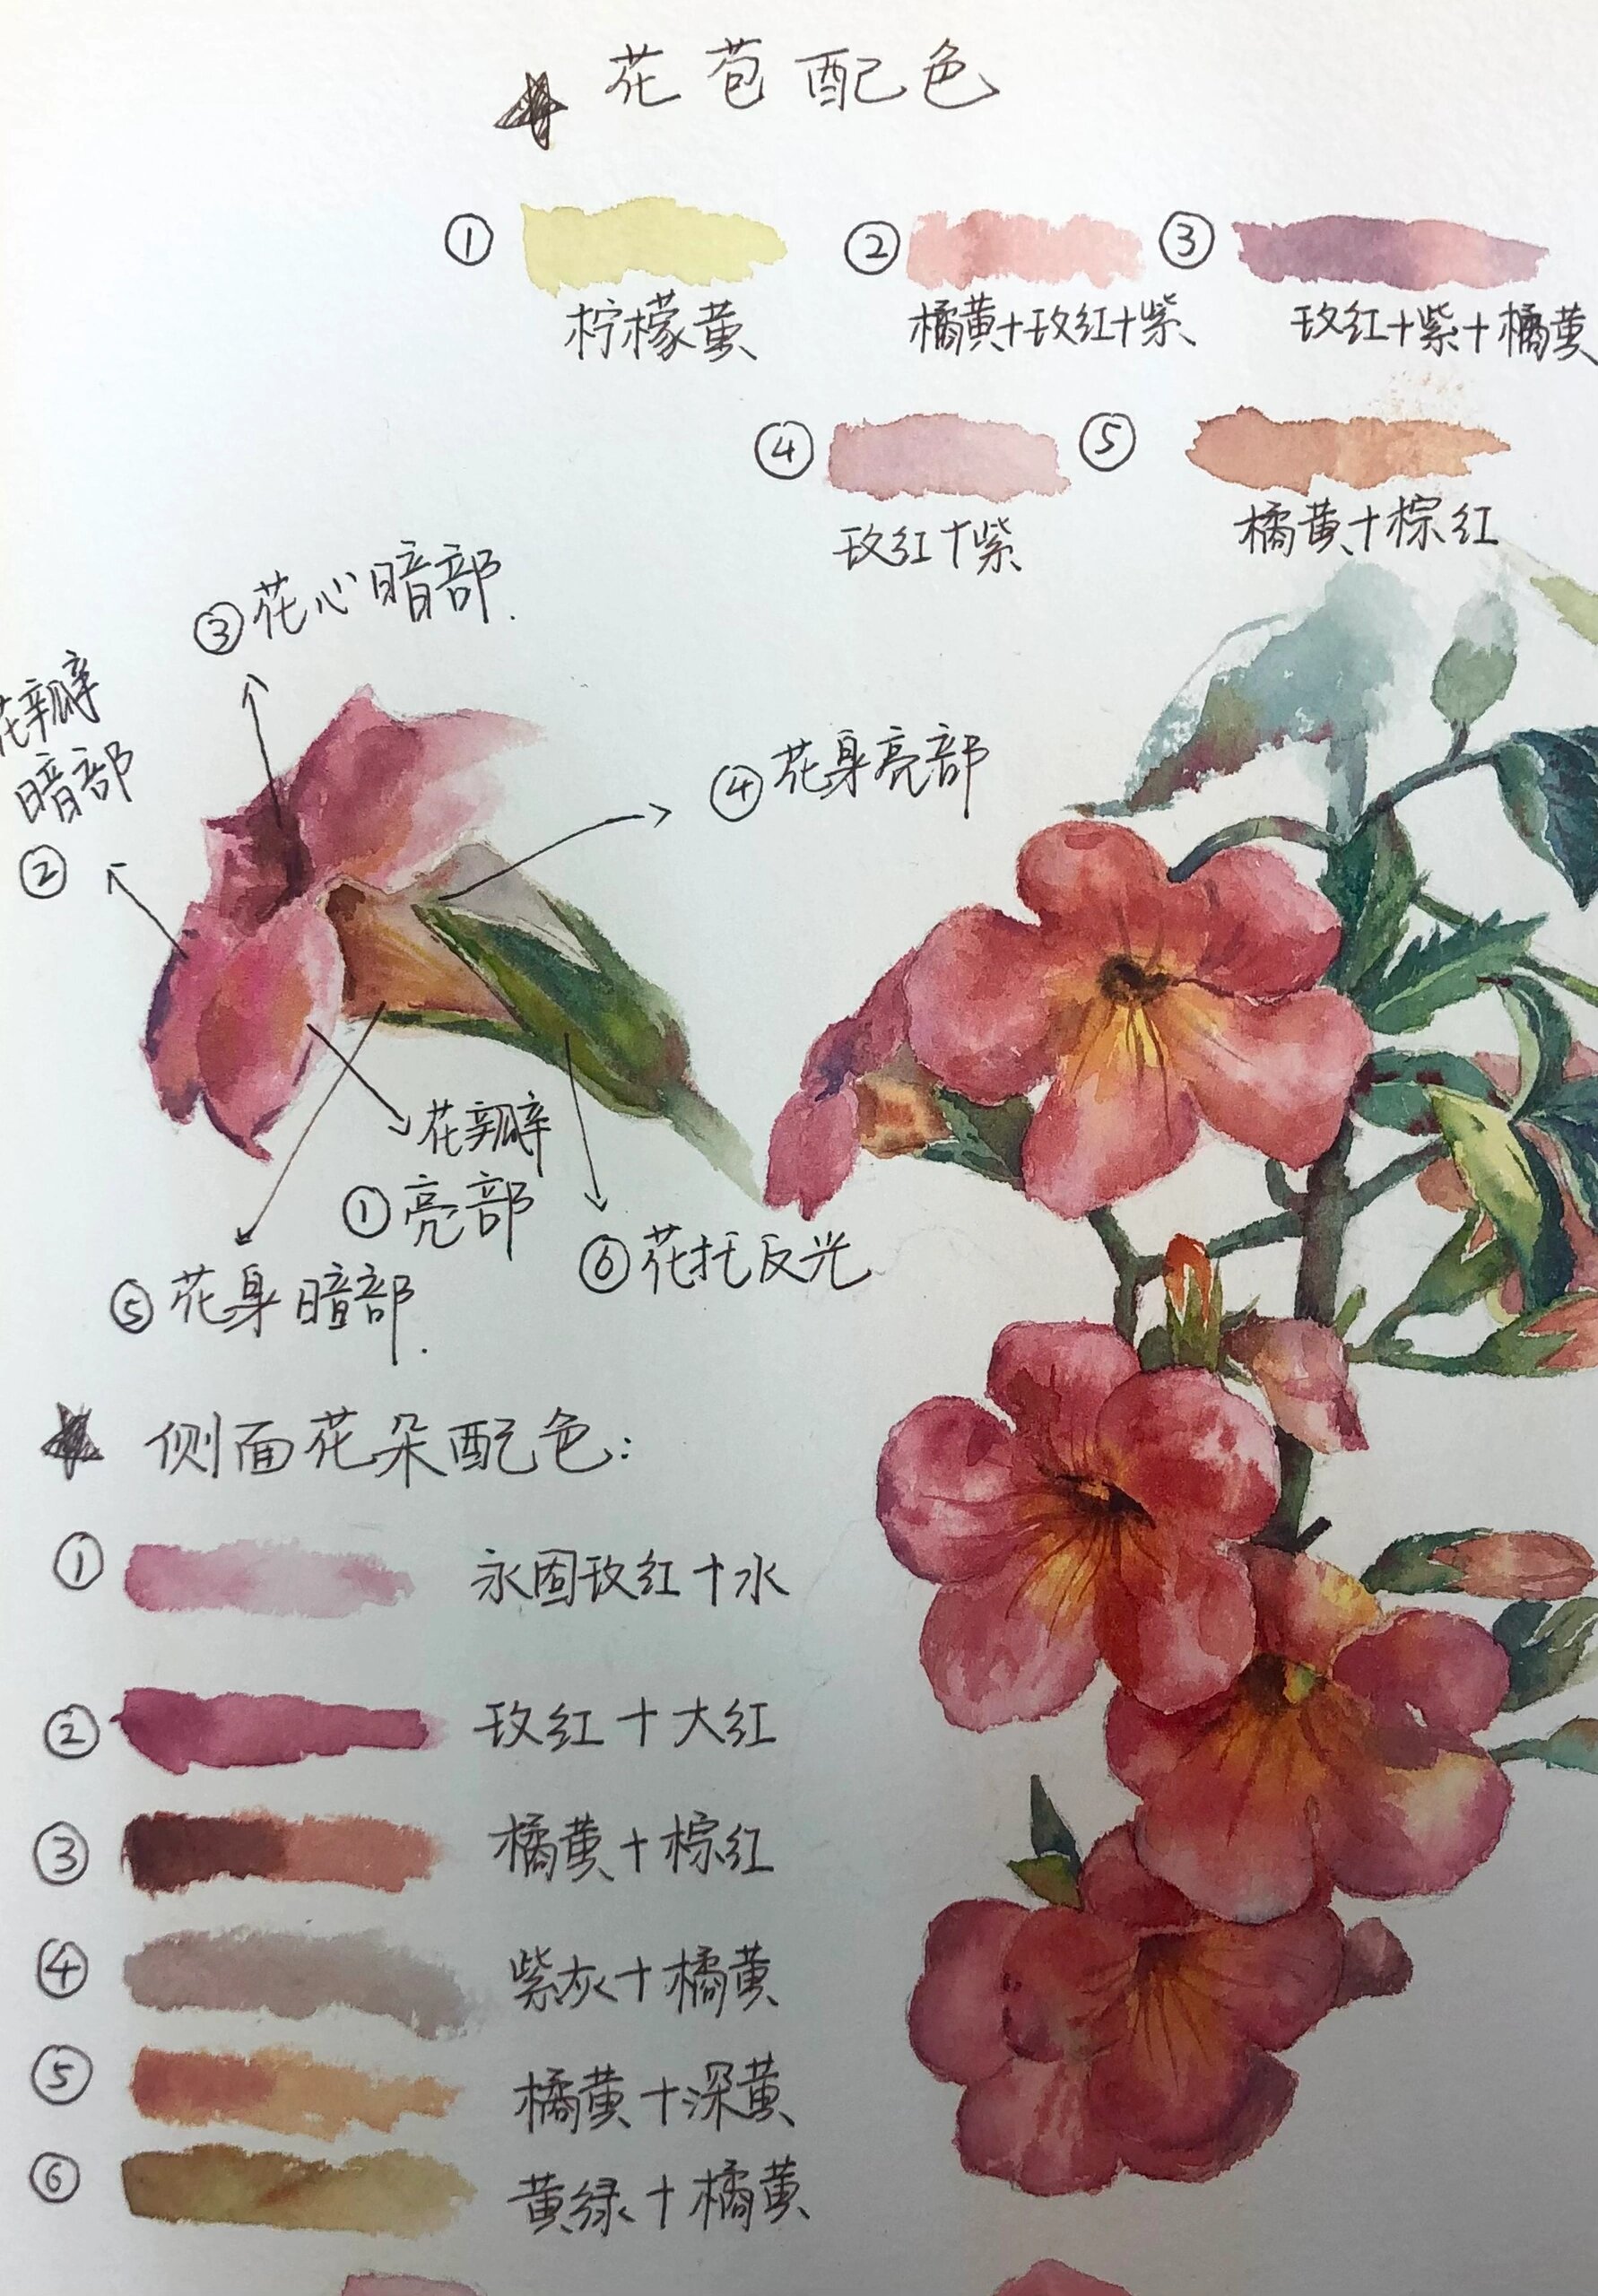 花苞配色
① ② ③
柠檬黄 橘黄+玫红+紫 玫红+紫+橘黄
④ ⑤
玫红+紫 橘黄+棕红
③花心暗部.
花瓣
暗部
②
④花身亮部
花瓣
①亮部
⑥花托反光
⑤花身暗部.
侧面花朵配色:
① 永固玫红+水
② 玫红+大红
③ 橘黄+棕红
④ 紫灰+橘黄
⑤ 橘黄+深黄
⑥ 黄绿+橘黄